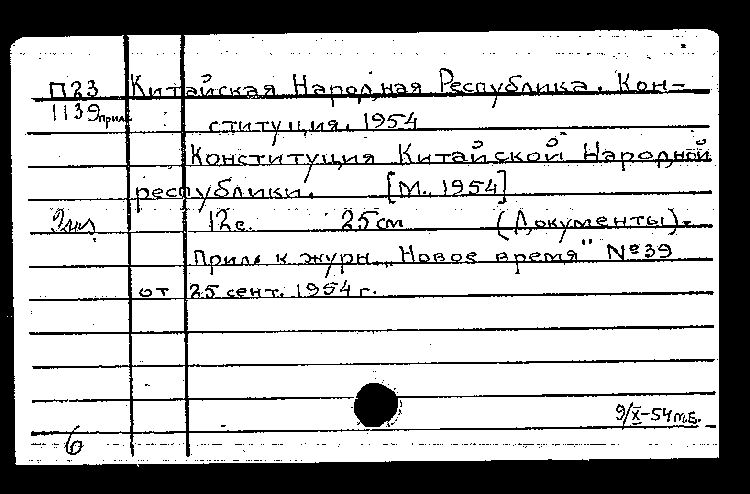 П23 Китайская Народная Республика. Кон-
1139прил. ституция. 1954
Конституция Китайской Народной
республики. [М., 1954]
12с. 25см (Документы).
Прил. к журн. „Новое время" №39
от 25 сент. 1954 г.
9/X-54 м.Б.
6